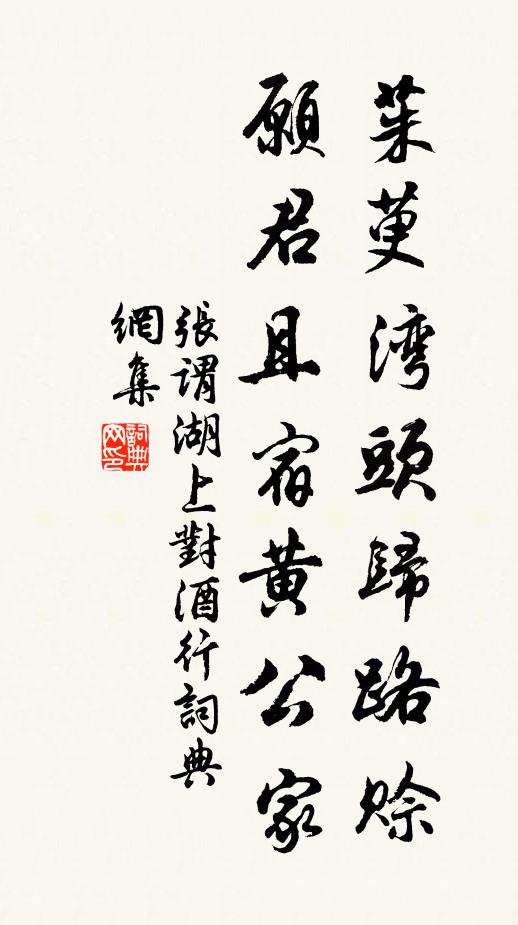 茱萸湾頭歸路賒
願君且宿黄公家
張謂湖上對酒行詞典
網集
詞典
网印